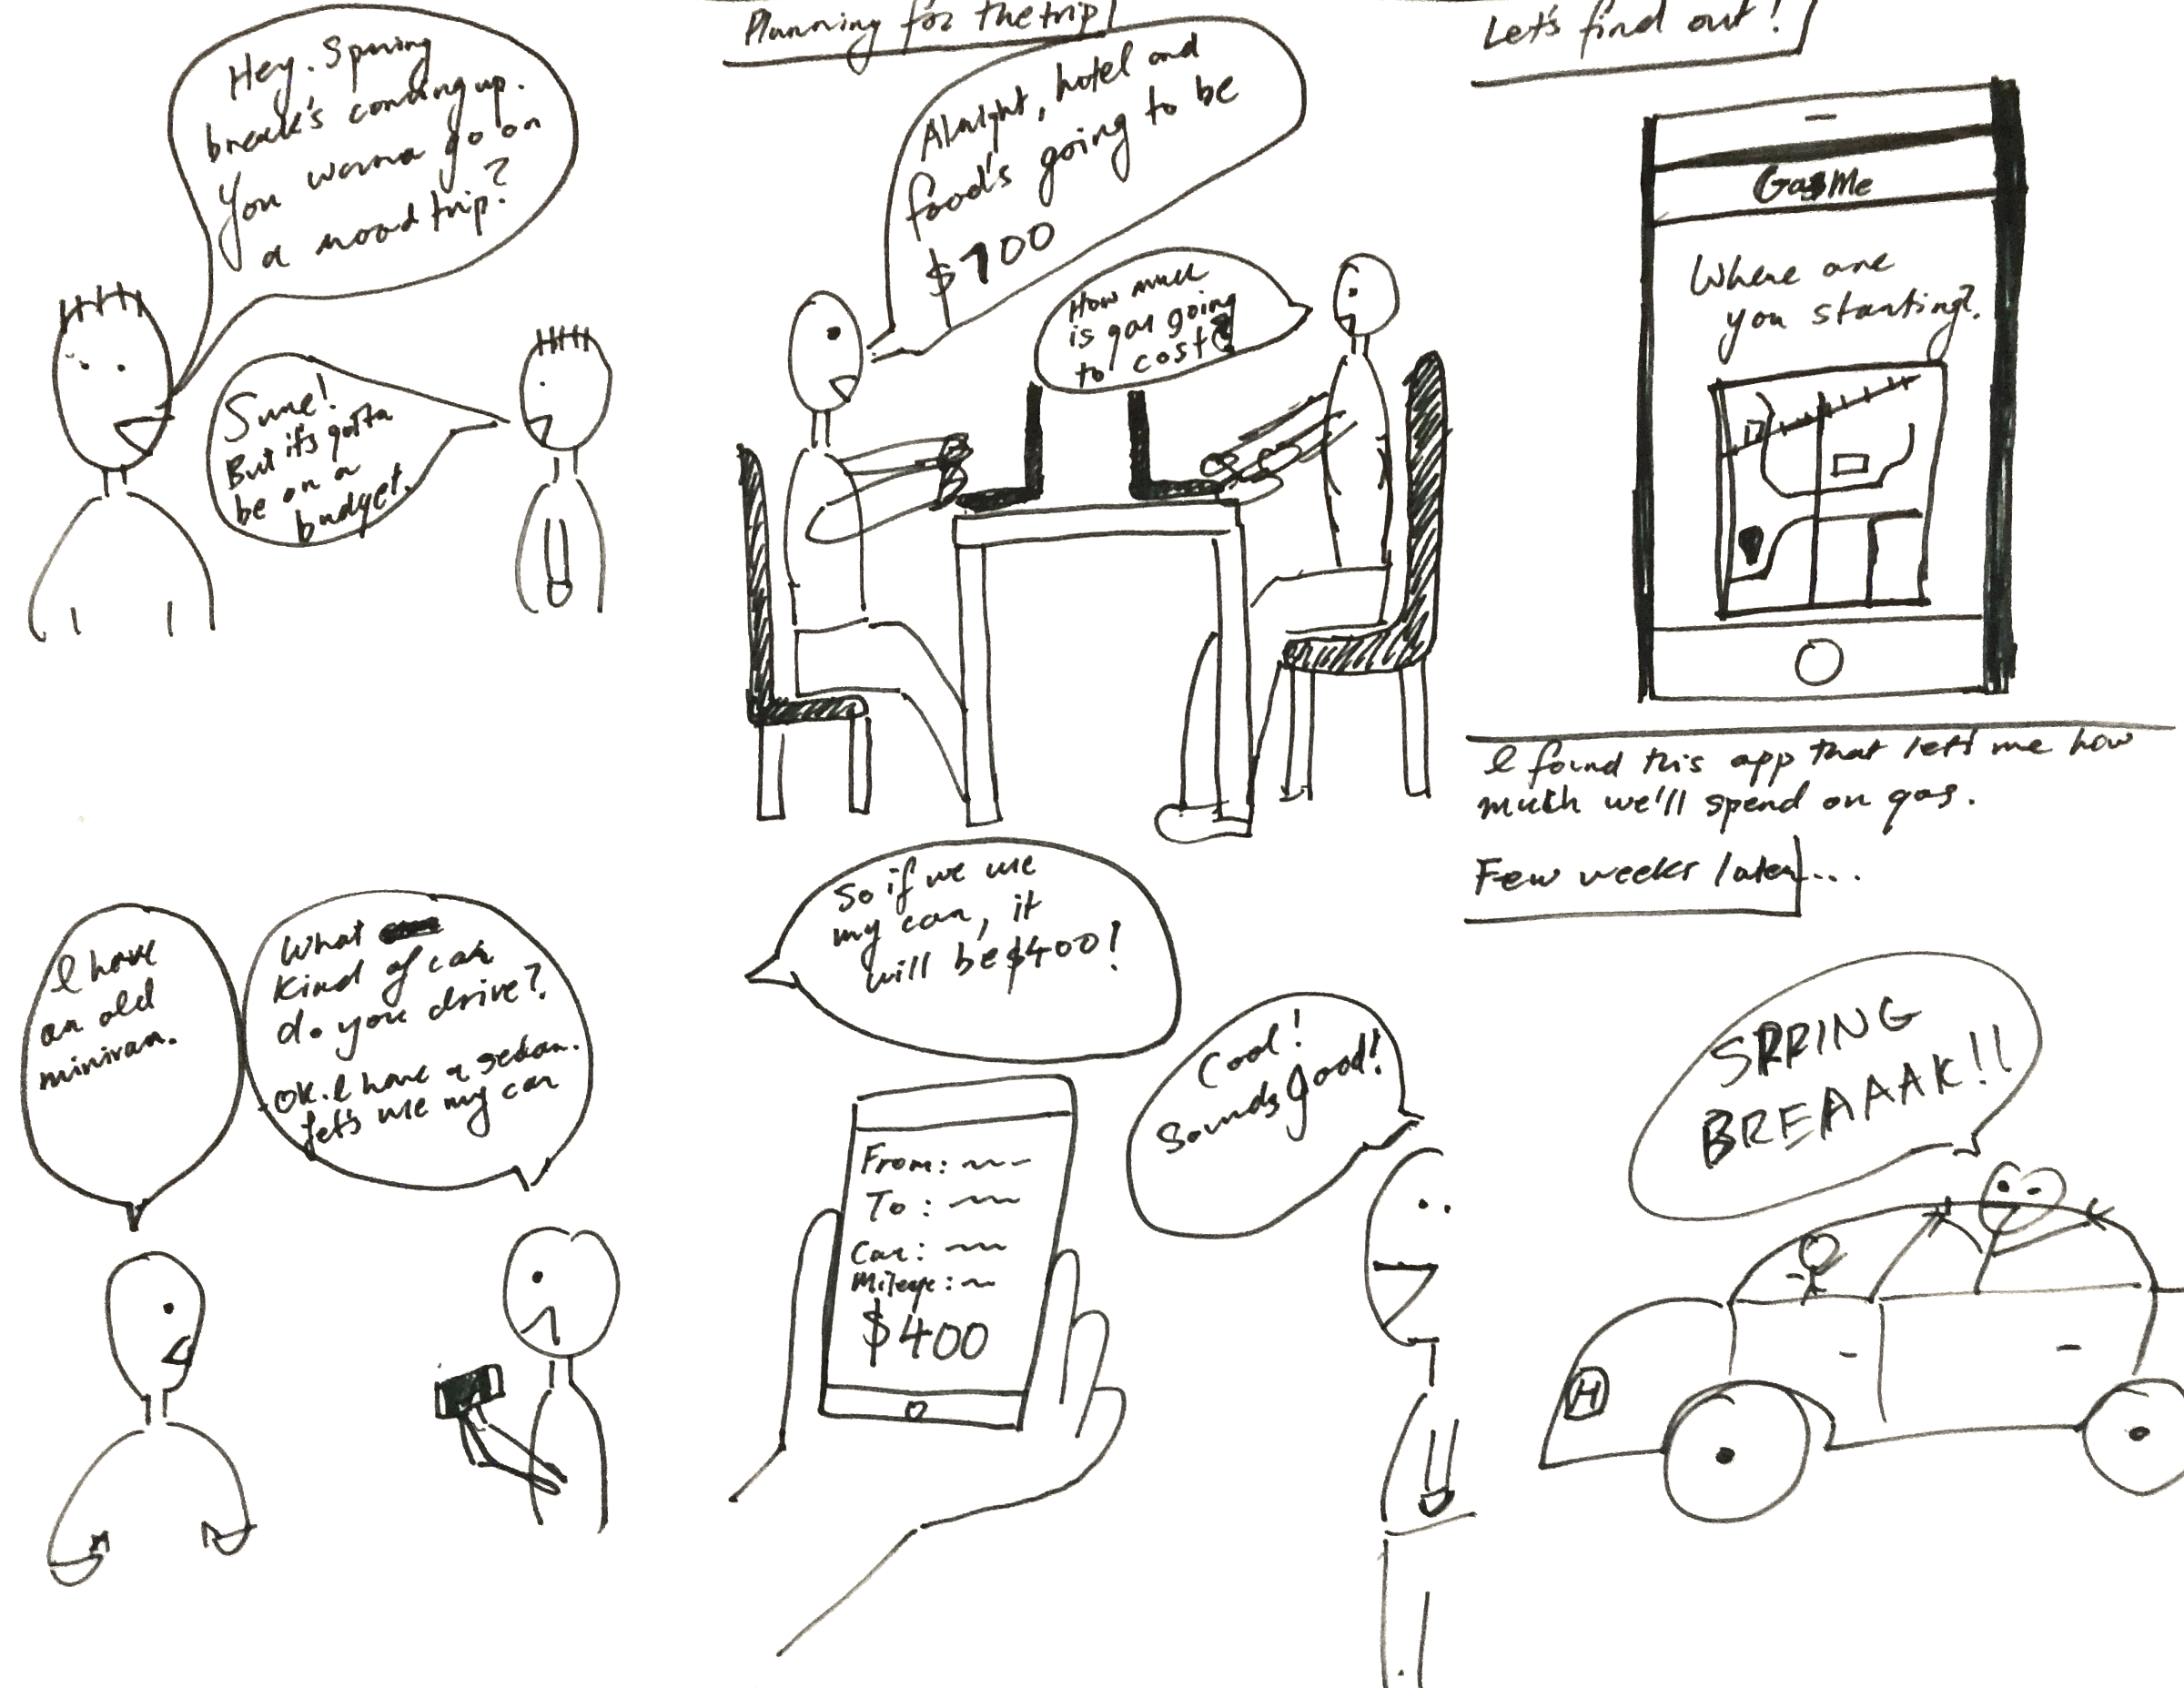 Hey. Spring
break's coming up.
You wanna go on
a road trip?
Sure!
But it's gotta
be on a
budget.
Planning for the trip!
Alright, hotel and
food's going to be
$700
How much
is gas going
to cost?
Let's find out!
GasMe
Where are
you starting?
I found this app that let's me how
much we'll spend on gas.
I have
an old
minivan.
What
kind of car
do you drive?
OK. I have a sedan.
Let's use my car
So if we use
my car, it
will be $400!
From:
To:
Car:
Mileage:
$400
Cool!
Sounds good!
Few weeks later...
SPRING
BREAAAK!!
H